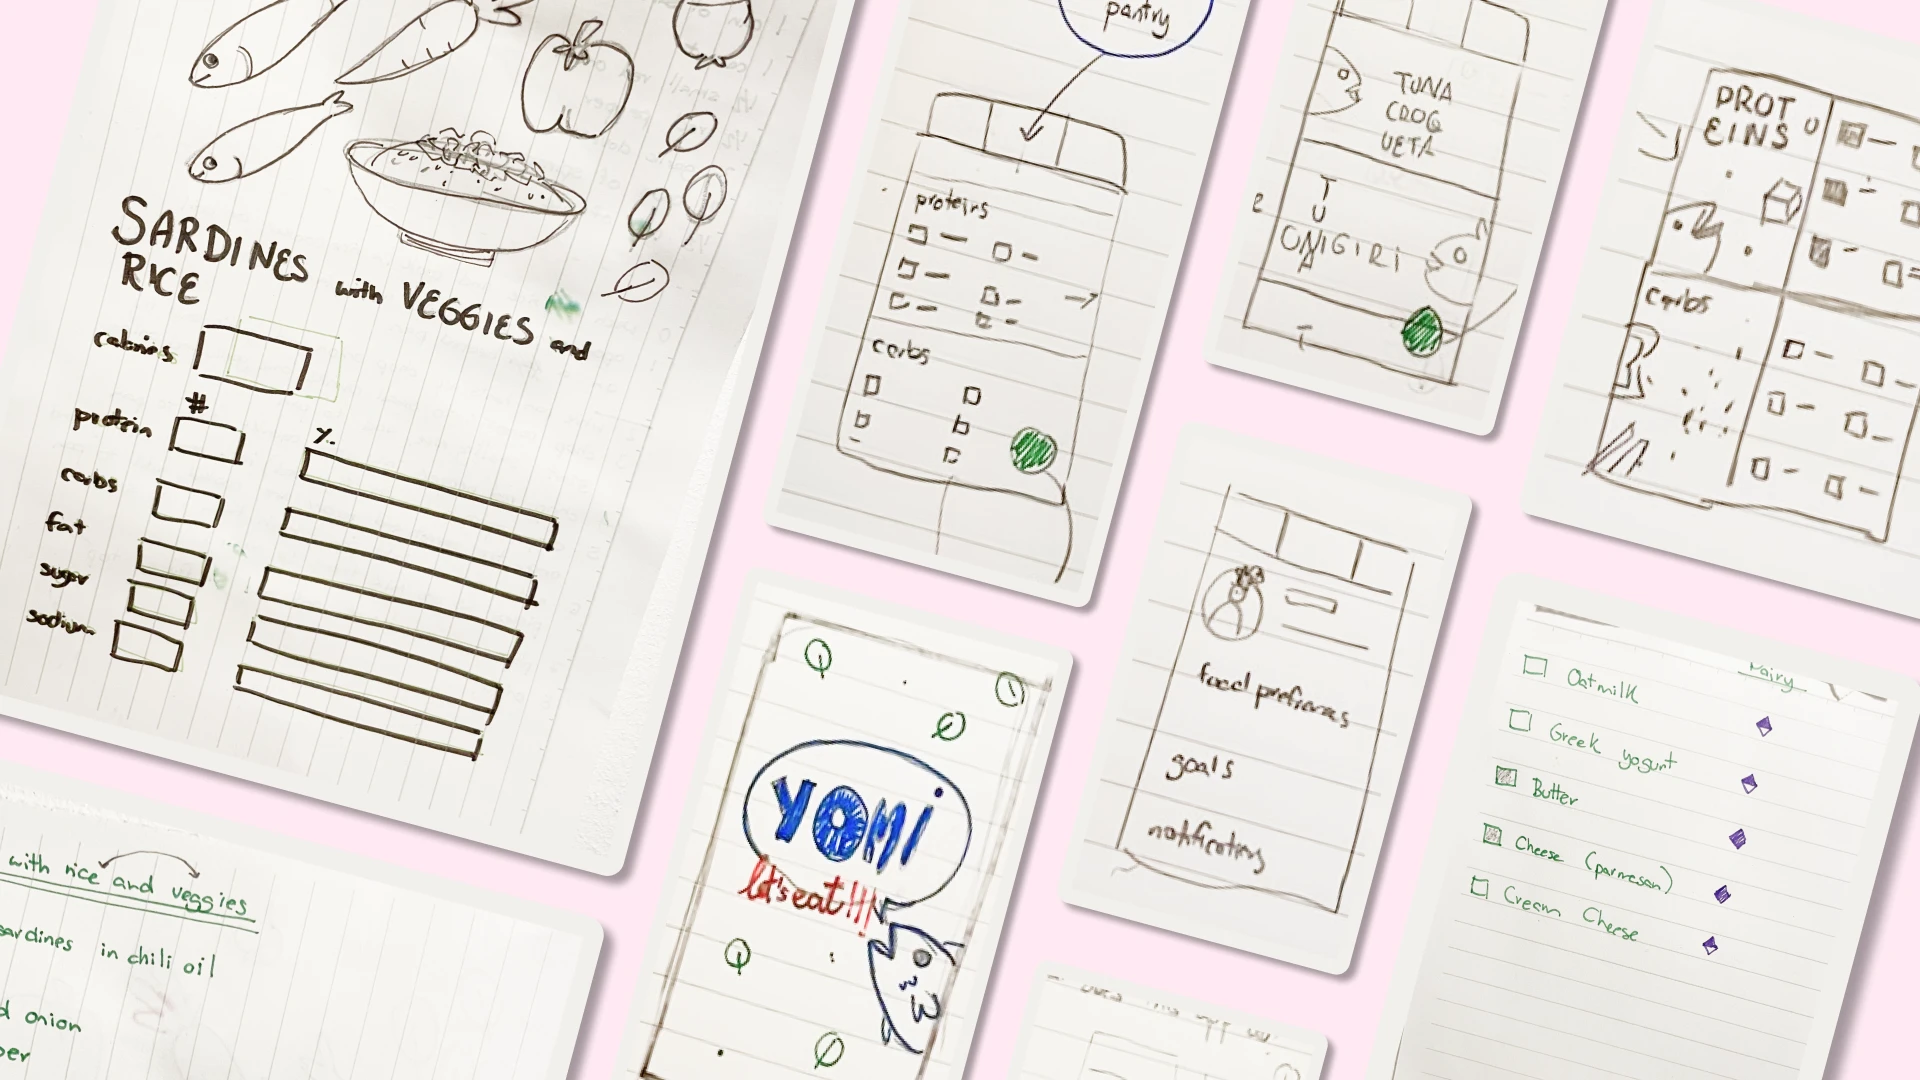 SARDINES with VEGGIES and
RICE
calories
#
protein
%
carbs
fat
sugar
sodium
with rice and veggies
sardines in chili oil
onion
pantry
proteins
carbs
TUNA
CROQ
UETA
ONIGIRI
PROT
EINS
carbs
YOMi
let's eat!!!
food prefrences
goals
notifications
Dairy
Oatmilk
Greek yogurt
Butter
Cheese (parmesan)
Cream Cheese